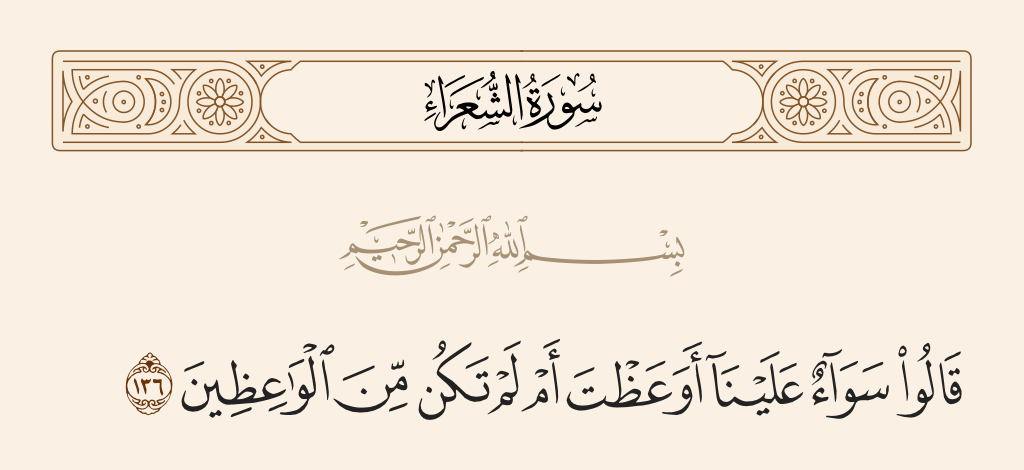 سُورَةُ الشُّعَرَاءِ
بِسْمِ ٱللَّهِ ٱلرَّحْمَٰنِ ٱلرَّحِيمِ
قَالُوا۟ سَوَآءٌ عَلَيْنَآ أَوَعَظْتَ أَمْ لَمْ تَكُن مِّنَ ٱلْوَٰعِظِينَ ١٣٦